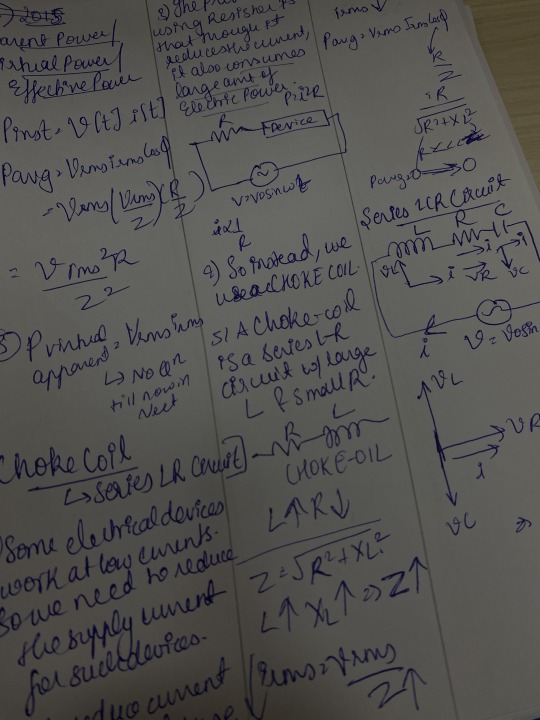 2015
Parent Power/
Virtual Power/
Effective Power
Pinst = V[t] i[t]
Pavg = Vrms Irms cosϕ
= Vrms (Vrms/Z) (R/Z)
= Vrms²R/Z²
Pvirtual apparent = Vrms irms
↳ No Qn
till now in
Neet
Choke Coil
↳ Series LR Circuit
Some electrical devices
work at low currents.
So we need to reduce
the supply current
for such devices.
current
using Resister is
that though it
reduces the current,
it also consumes
large amt of
Electric Power.
P=i²R
R
Device
V=V0sinωt
i∝1/R
4) So instead, we
use a CHOKE COIL.
5) A Choke-coil
is a series L-R
circuit w/ large
L & small R.
R L
CHOKE-OIL
L↑ R↓
Z = √R²+XL²
L↑ XL↑ ⇒ Z↑
irms = Vrms/Z↑
irms↓
Pavg = Vrms Irms cosϕ
R/Z
R/√R²+XL²
Pavg → 0
Series LCR Circuit
L R C
VL i VR i VC
i
V = V0sin
VL
VR
i
VC
⇒